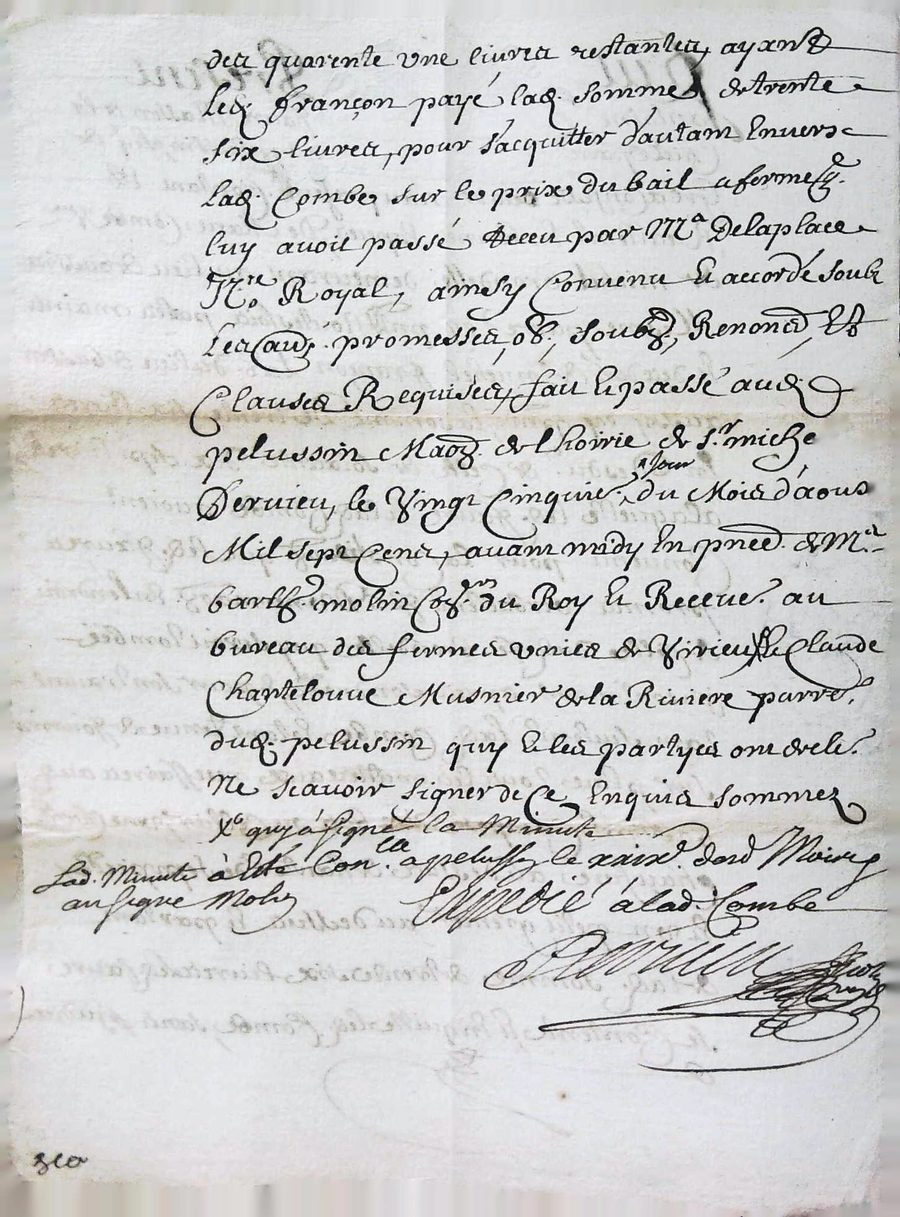 des quarente une livres restantes, ayant
Led. françon payé lad. somme de trente
six livres, pour s'acquitter d'autant Envers
Lad. Combe sur le prix du bail a ferme q.
luy avoit passé Receu par Me Delaplace
Nre Royal, ainsy Convenu Et accordé soubz
Les aud. promesses, ob., soubz., Renonc., Et
Clauses Requises, fait Et passé aud.
pelussin de st. miche
Dervieu, le Vingt Cinquie. jour du Mois d'aous
Mil sept Cens, avant midy En pnce. de Me
barth. molin du Roy Et Receve. au
bureau des fermes unies de Virieu, Et Claude
Chantelouve Musnier de la Riviere parre.
dud. pelussin quy Et les partyes ont decle.
Ne scavoir signer de Ce Enquis sommez
Xo quy a signé la Minute
Lad. Minute à Este Con.lée a pelussin le xxix.
au signe Molin Expedié à lad. Combe
Dervieu